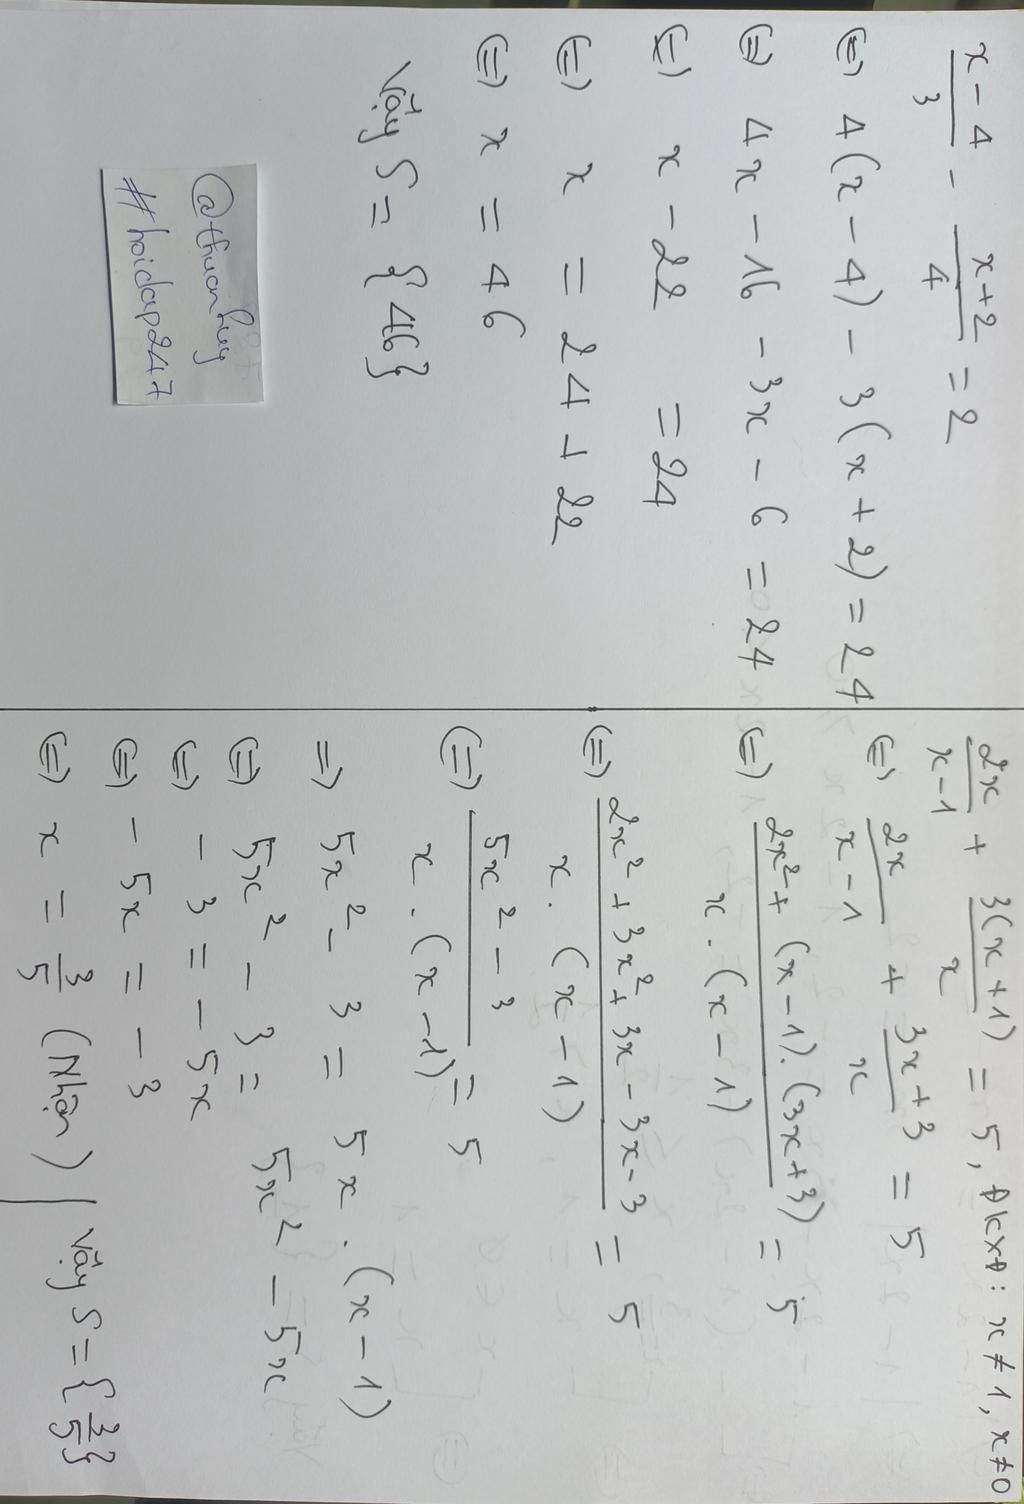 x-4/3 - x+2/4 = 2
(=) 4(x-4) - 3(x+2) = 24
(=) 4x - 16 - 3x - 6 = 24
(=) x - 22 = 24
(=) x = 24 + 22
(=) x = 46
Vậy S = {46}
@thuanhuy
#hoidap247
2x/x-1 + 3(x+1)/x = 5, ĐKXĐ: x≠1, x≠0
(=) 2x/x-1 + 3x+3/x = 5
(=) 2x² + (x-1).(3x+3)/x.(x-1) = 5
(=) 2x² + 3x² + 3x - 3x - 3/x.(x-1) = 5
(=) 5x² - 3/x.(x-1) = 5
=) 5x² - 3 = 5x.(x-1)
(=) 5x² - 3 = 5x² - 5x
(=) -3 = -5x
(=) -5x = -3
(=) x = 3/5 (Nhận) | Vậy S = {3/5}